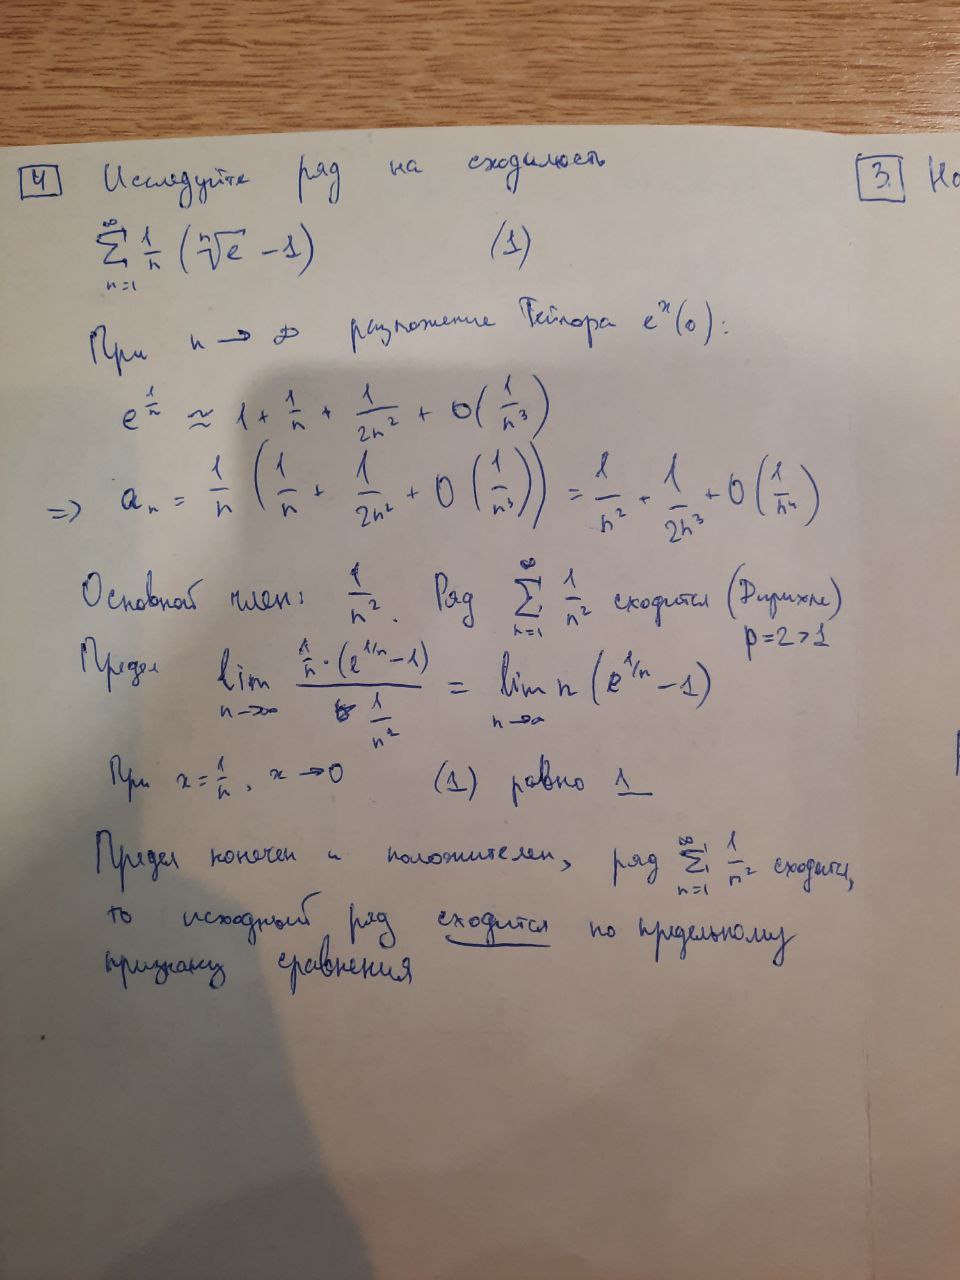 4 Исследуйте ряд на сходимость
3. На
∑_{n=1}^{∞} 1/n (ⁿ√e - 1) (1)
При n → ∞ разложение Тейлора e^x(0):
e^{1/n} ≈ 1 + 1/n + 1/2n² + O(1/n³)
=> a_n = 1/n (1/n + 1/2n² + O(1/n³)) = 1/n² + 1/2n³ + O(1/n⁴)
Основной член: 1/n². Ряд ∑_{n=1}^{∞} 1/n² сходится (Дирихле)
p=2>1
Предел lim_{n→∞} (1/n·(e^{1/n}-1))/(1/n²) = lim_{n→∞} n(e^{1/n}-1)
При x=1/n, x→0 (1) равно 1
Предел конечен и положителен, ряд ∑_{n=1}^{∞} 1/n² сходится,
то исходный ряд сходится по предельному
признаку сравнения